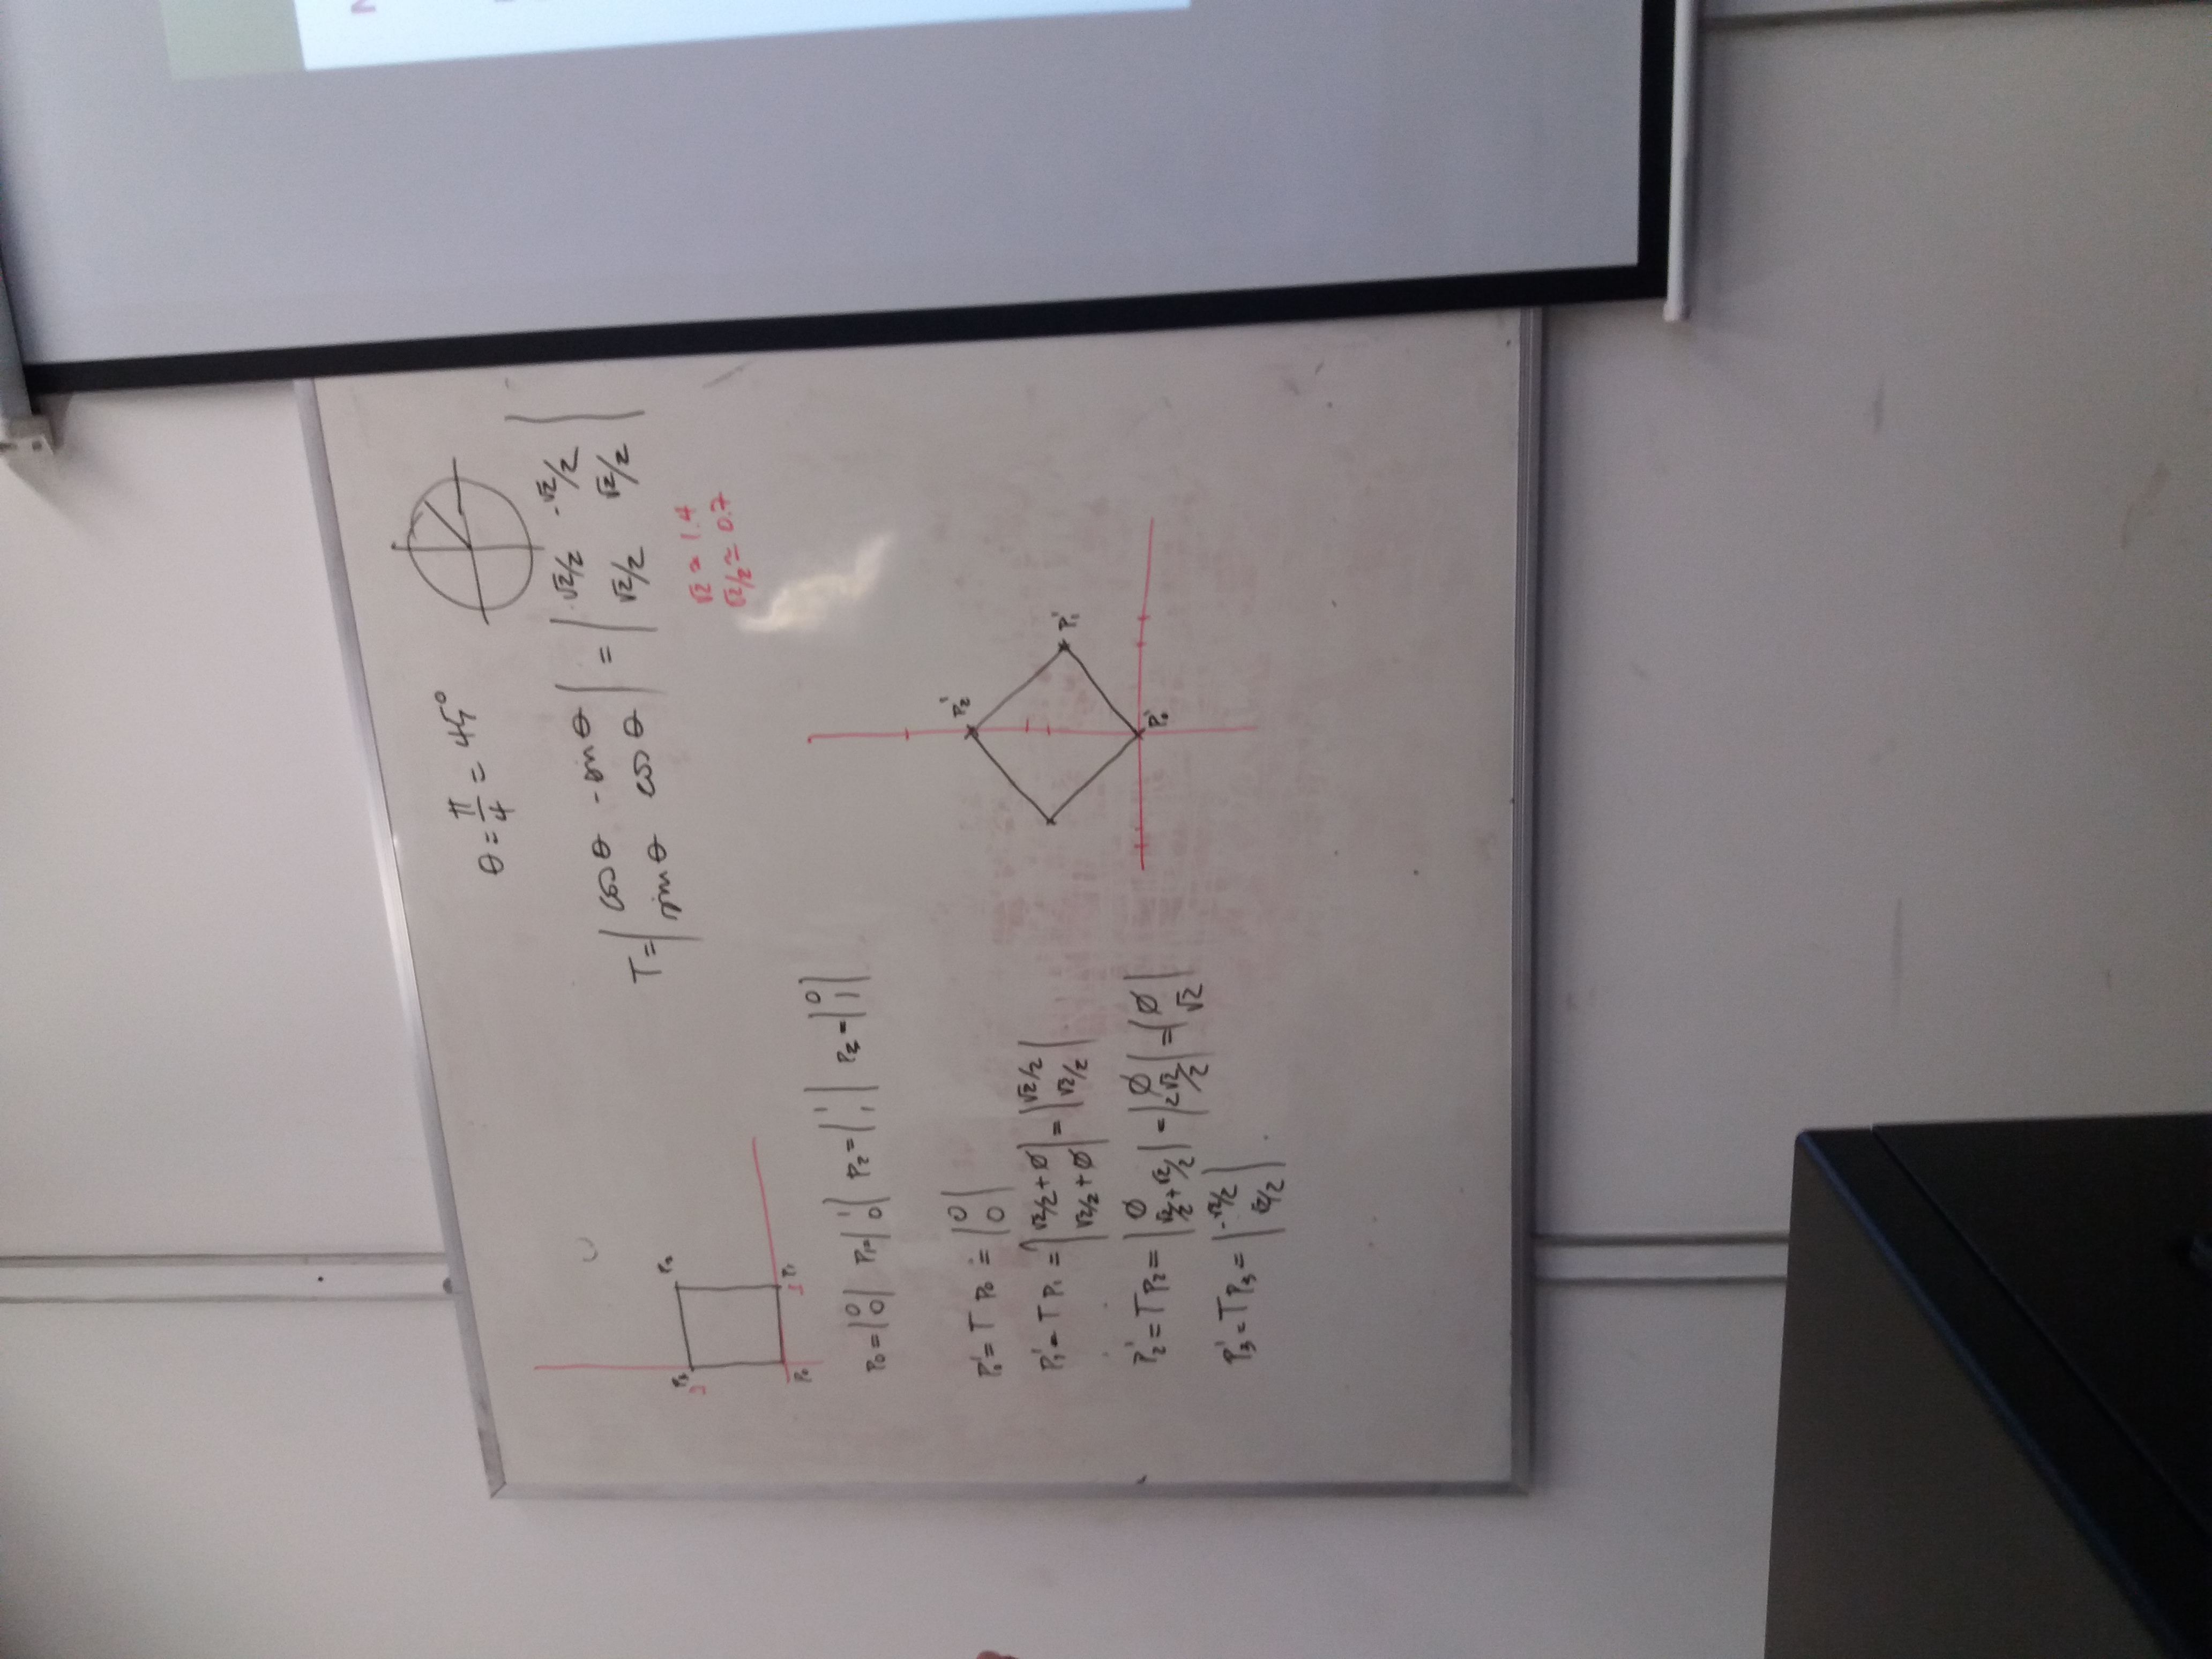 θ = π/4 = 45°
T = | cos θ -sin θ | = | √2/2 -√2/2 |
| sin θ cos θ | | √2/2 √2/2 |
√2 ≈ 1.4
√2/2 ≈ 0.7
P₃ P₂
1
P₀ 1 P₁
P₀ = |0 0| P₁ = |1 0| P₂ = |1 1| P₃ = |0 1|
P₀' = T P₀ = |0 0|
P₁' = T P₁ = |√2/2 + ∅ √2/2 + ∅| = |√2/2 √2/2|
P₂' = T P₂ = |∅ √2/2 + √2/2| = |∅ 2√2/2| = |∅ √2|
P₃' = T P₃ = |-√2/2 √2/2|
P₂'
P₁'
P₀'
N